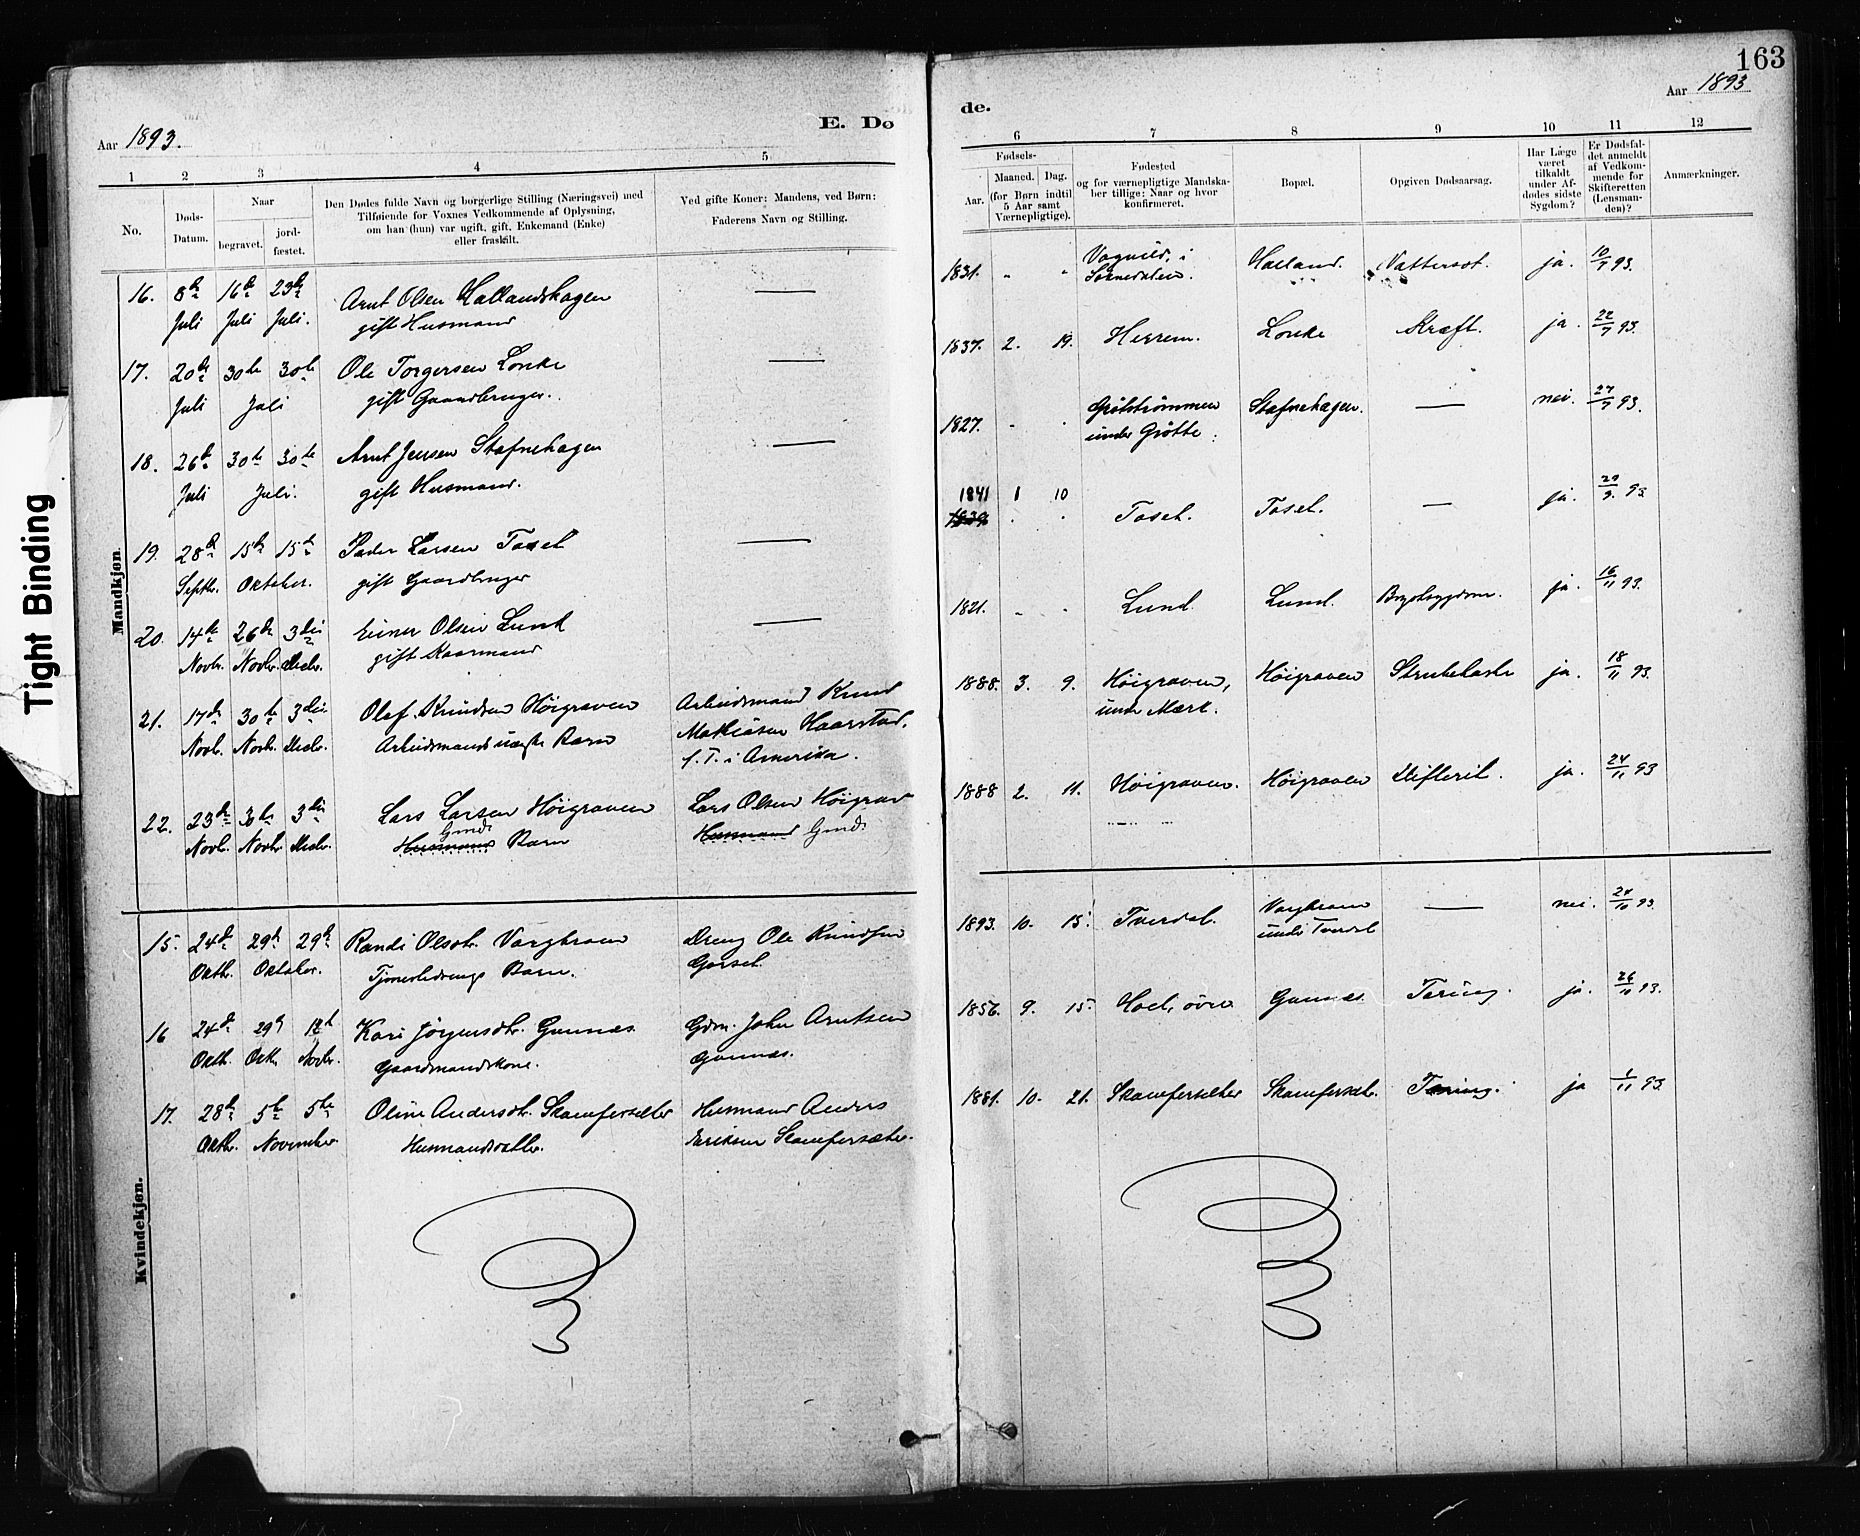 163
Aar 1893.
E. Dø
de.
Aar 1893
1 2 3 4 5 6 7 8 9 10 11 12
No.
Døds-Datum.
Naar
begravet.
jord-fæstet.
Den Dødes fulde Navn og borgerlige Stilling (Næringsvei) med
Tilføiende for Voxnes Vedkommende af Oplysning,
om han (hun) var ugift, gift, Enkemand (Enke)
eller fraskilt.
Ved gifte Koner: Mandens, ved Børn:
Faderens Navn og Stilling.
Fødsels-
Aar.
Maaned. Dag.
(for Børn indtil
5 Aar samt
Værnepligtige).
Fødested
og for værnepligtige Mandska-
ber tillige: Naar og hvor
konfirmeret.
Bopæl.
Opgiven Dødsaarsag.
Har Læge
været
tilkaldt
under Af-
dødes sidste
Sygdom?
Er Dødsfal-
det anmeldt
af Vedkom-
mende for
Skifteretten
(Lensman-
den)?
Anmærkninger.
Tight Binding
Mandkjøn.
16. 8de 16de 23de Arnt Olsen Hallandshagen — 1831. - - Vognild, i Halland. Nattersot. ja. 10/7 93.
Juli Juli Juli. gift Husmand Sørnedalen.
17. 20de 30te 30te Ole Torgersen Lonke — 1837. 2. 19. Herrem. Lonke Kræft. ja. 22/7 93.
Juli Juli gift Gaardbruger.
18. 26de 30te 30te Arnt Jensen Stafnehagen — 1827. - - Grötströmmen Stafnehagen. — nei. 27/7 93.
Juli Juli. gift Husmand. under Grötte.
19. 28de 15de 15de Peder Larsen Toset — 1841 1 10 Toset. Toset. — ja. 29/9. 93.
Septbr. Oktober. gift Gaardbruger 1839
20. 14de 26de 3die Einer Olsen Lund — 1821. - - Lund. Lund. Brystsygdom. ja. 16/11 93.
Novbr. Novbr. Decbr. gift Kaarmand
21. 17de 30te 3die Olaf Knudsen Höigraven Arbeidsmand Knud 1888. 3. 9. Höigraven, Höigraven Strubehoste ja. 18/11 93.
Novb. Novb. Decbr. Arbeidsmands uægte Barn Mathiasen Haarstad. under Mærk.
f. T. i Amerika.
22. 23de 30te 3die Lars Larsen Höigraven Lars Olsen Höigrav 1888 2. 11. Höigraven. Höigraven Difterit. ja. 24/11 93
Novb. Novbr Decbr. Husmands Gmds Barn Husmand Gmd.
Kvindekjøn.
15. 24de 29de 29de Randi Olsdtr. Vorghraun Dreng Ole Knudsen 1893. 10. 15. Tverdal. — nei. 24/10 93.
Oktb. Oktober. Tjenestedrengs Barn. Gorset. under Tverdal
16 24de 29de 12te Kari Jörgensdtr. Gunnes Gdm. John Arntsen 1856. 9. 15. Hoel, övre Gunnes. Tæring. ja. 26/10 93.
Oktb. Oktb. Novbr. Gaardmandskone. Gunnes.
17. 28de 5te 5te Oline Andersdtr. Skamfersæter Husmand Anders 1881. 10. 21. Skamfersæter Skamfersæt. Tæring. ja 1/11 93.
Oktbr. November Husmandsdatter. Eriksen Skamfersæter.